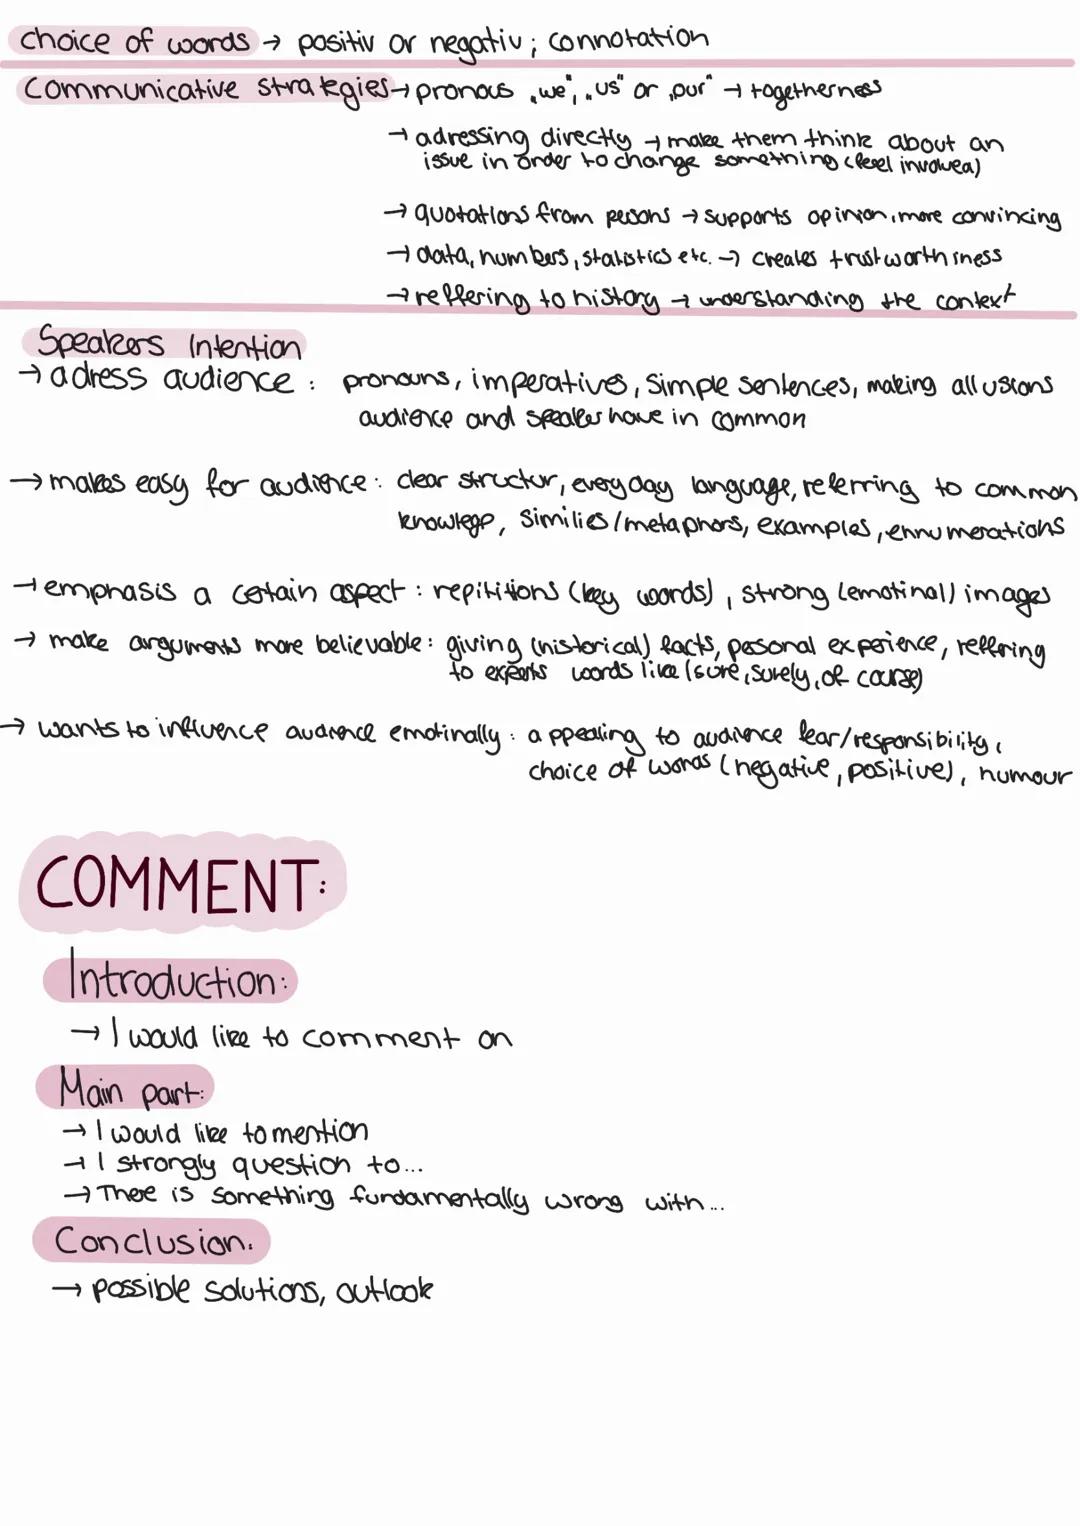 choice of words → positiv or negativ; connotation
Communicative strategies → pronous „we", „us" or „our" → togetherness
→ adressing directly → make them think about an
issue in order to change something (feel involved)
→ quotations from persons → supports opinion, more convincing
→ data, numbers, statistics etc. → creates trustworthiness
→ reffering to history → understanding the context
Speakers Intention
→ adress audience : pronouns, imperatives, simple sentences, making allusions
audience and speaker have in common
→ makes easy for audience : clear structur, everyday language, referring to common
knowlege, similies/metaphors, examples, ennumerations
→ emphasis a certain aspect : repititions (key words), strong (emotinal) images
→ make arguments more believable : giving (historical) facts, pesonal experience, reffering
to experts words like (sure, surely, of course)
→ wants to influence audience emotinally : appealing to audience fear/responsibility,
choice of words (negative, positive), humour
COMMENT:
Introduction:
→ I would like to comment on
Main part:
→ I would like to mention
→ I strongly question to...
→ There is something fundamentally wrong with...
Conclusion.
→ possible solutions, outlook